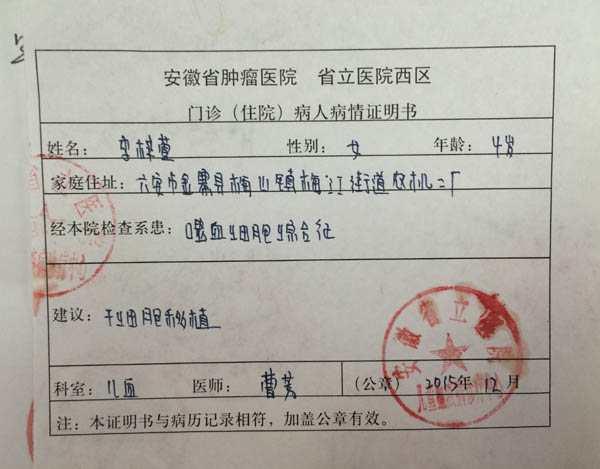 安徽省肿瘤医院 省立医院西区
门诊（住院）病人病情证明书
姓名：李梓萱 性别：女 年龄：4岁
家庭住址：六安市金寨县梅山镇梅江街道农机二厂
经本院检查系患：噬血细胞综合征
建议：干细胞移植
科室：儿血 医师：曹芳 （公章） 2015年12月
注：本证明书与病历记录相符，加盖公章有效。
安徽省立医院